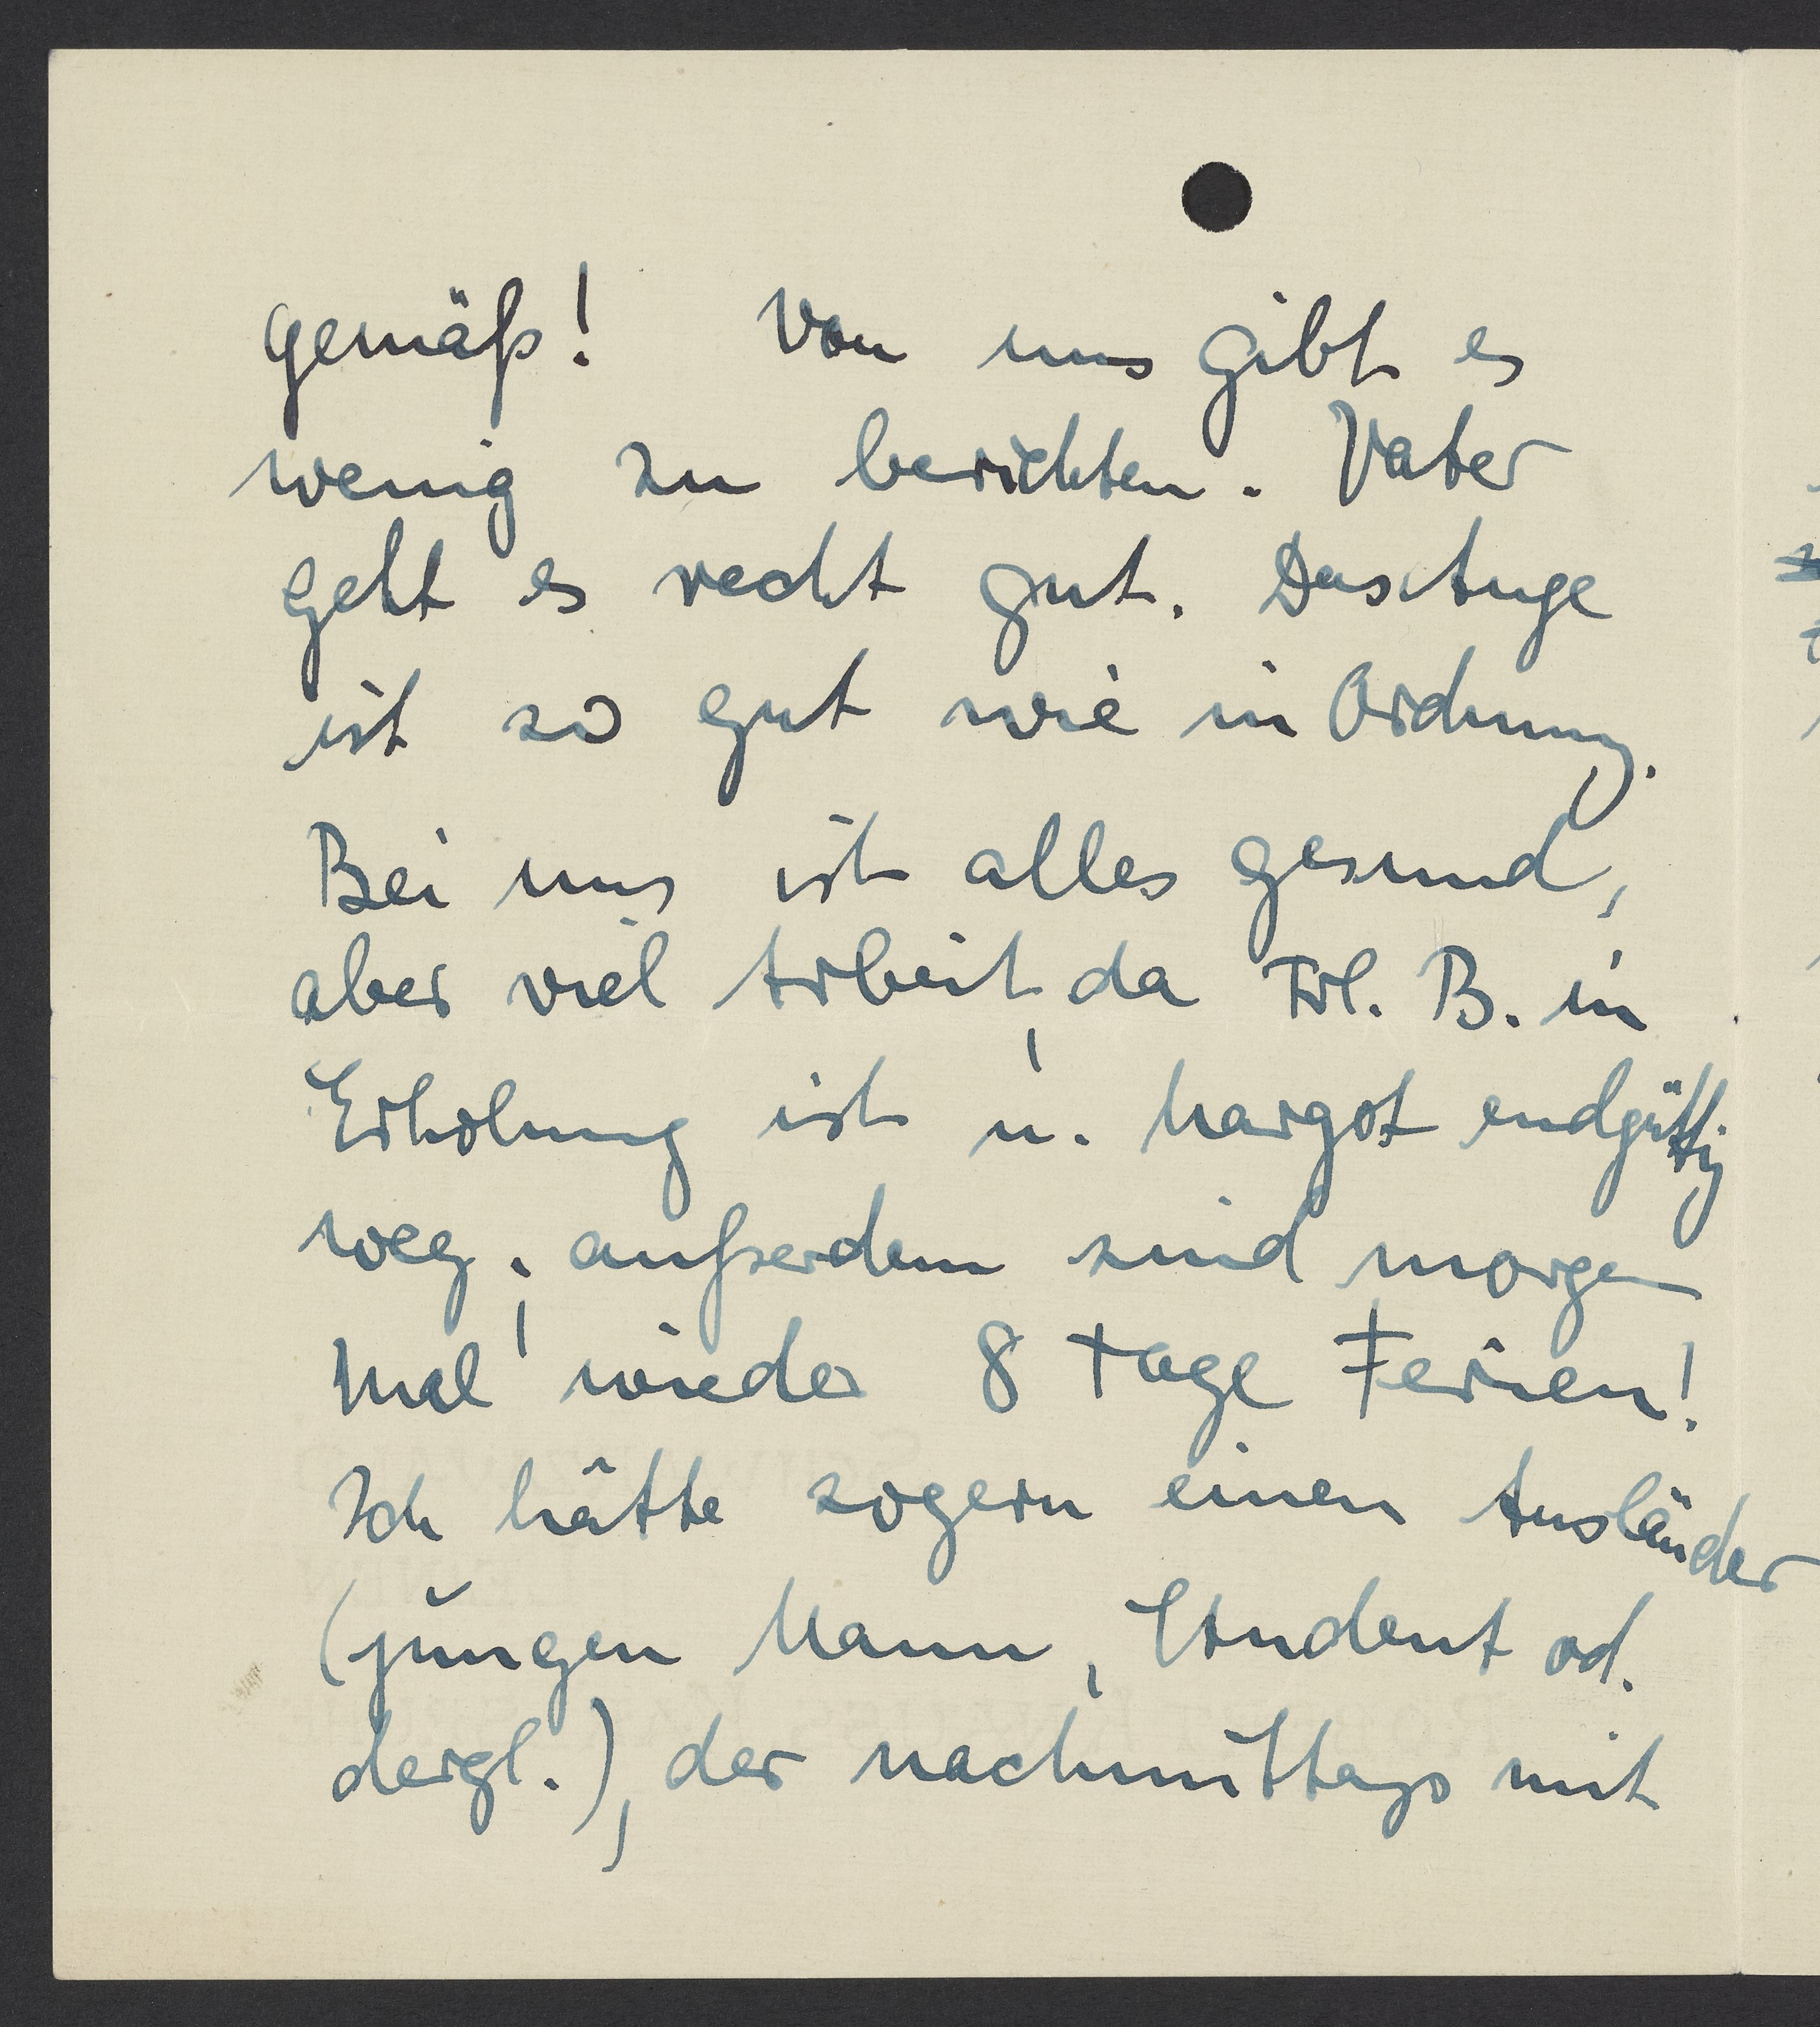 gemäß! Von uns gibt es
wenig zu berichten. Vater
geht es recht gut. Das Auge
ist so gut wie in Ordnung.
Bei uns ist alles gesund,
aber viel Arbeit, da Frl. B. in
Erholung ist u. Margot endgültig
weg; außerdem sind morgen
mal wieder 8 Tage Ferien!
Ich hätte sogern einen Ausländer
(jungen Mann, Student od.
dergl.), der nachmittags mit